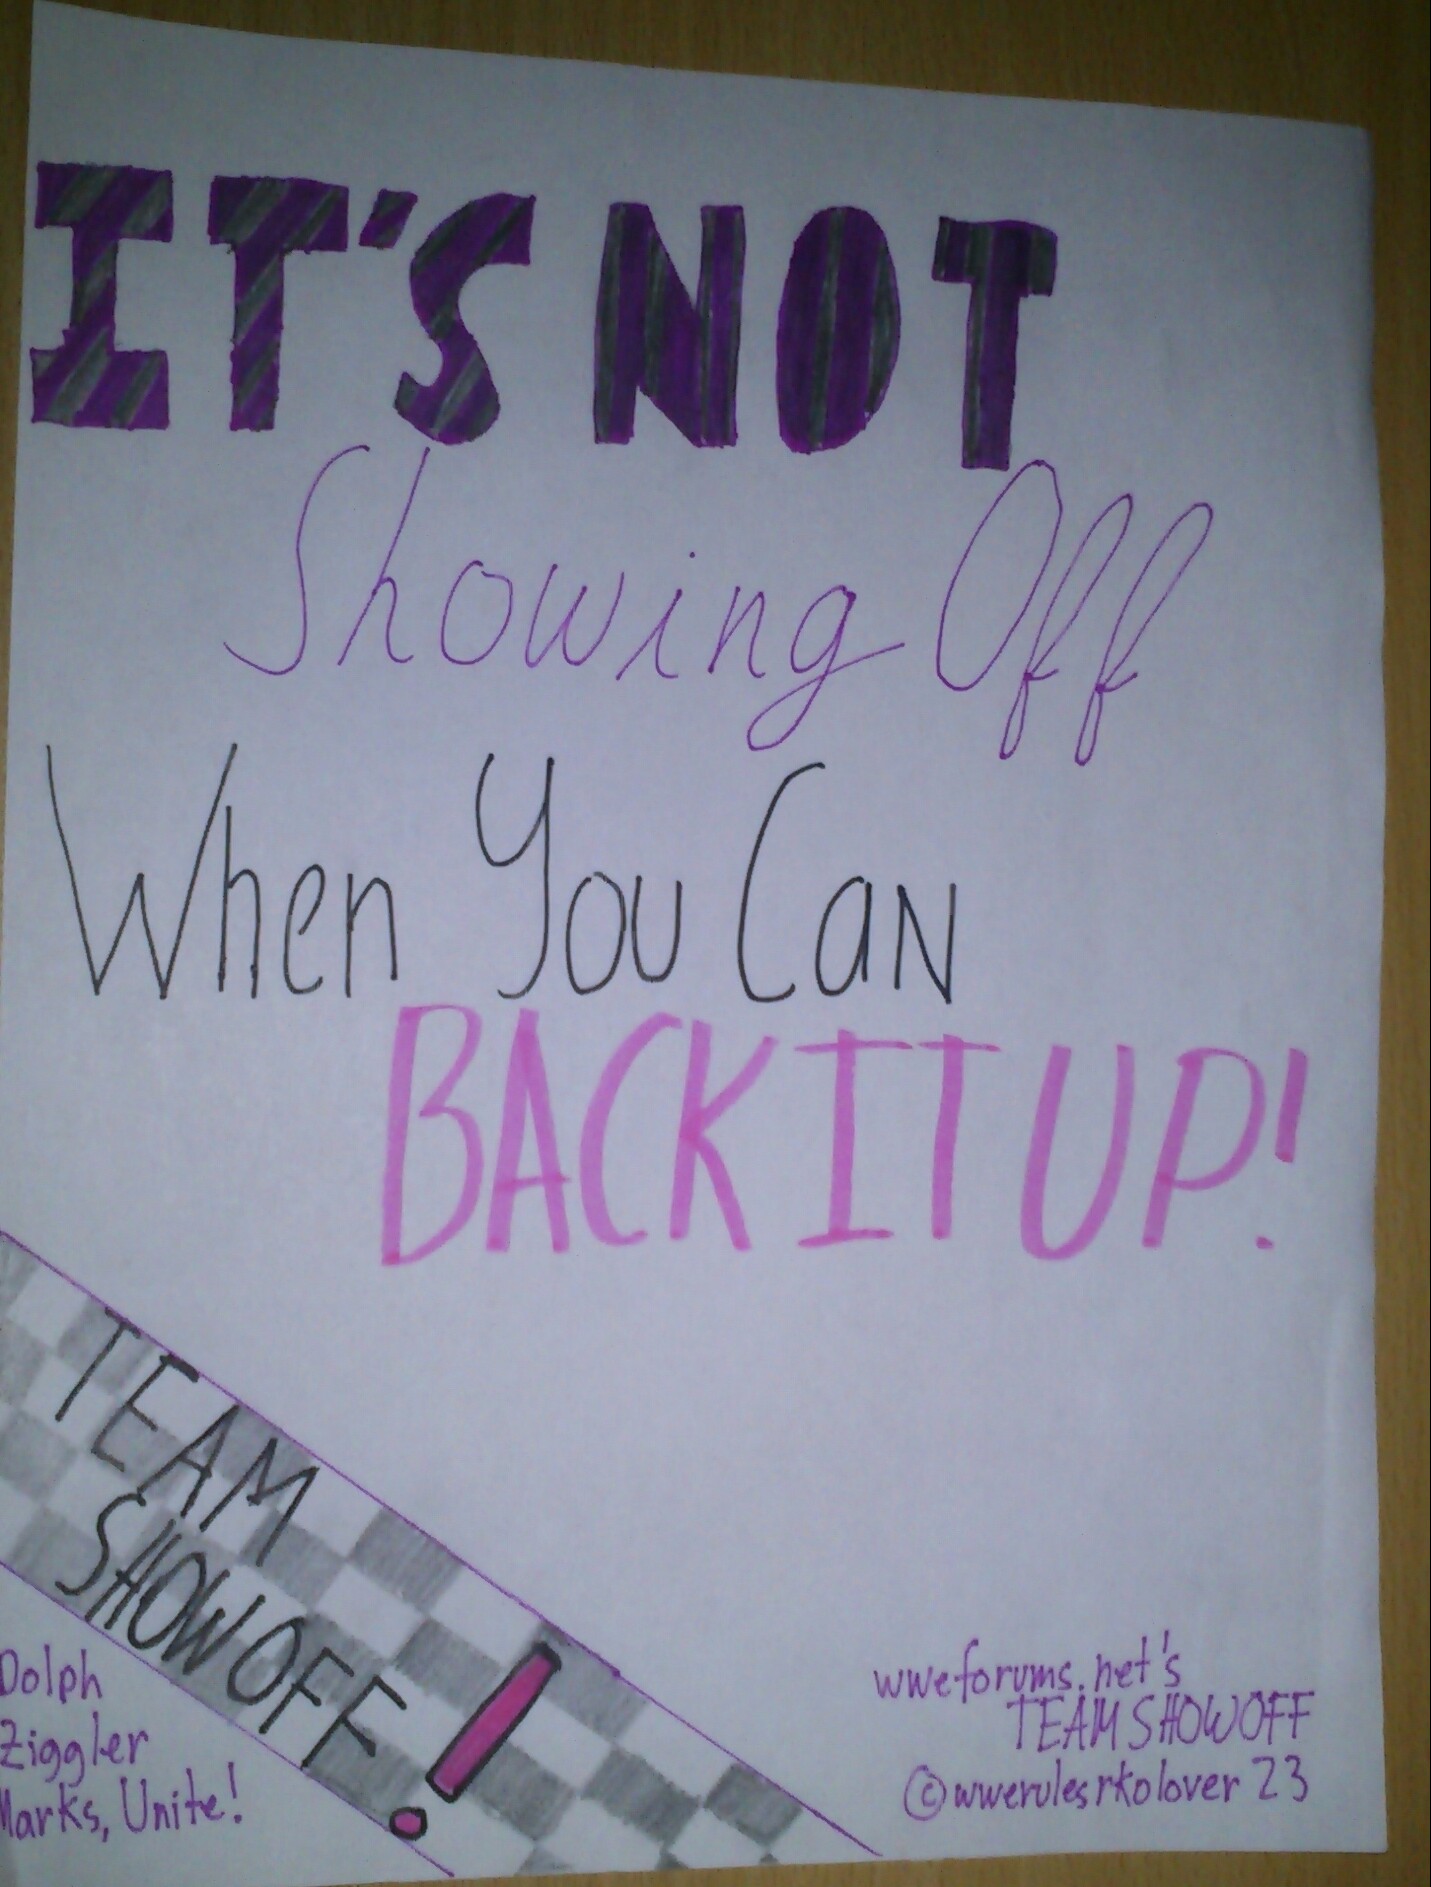 IT'S NOT
Showing Off
When You Can
BACK IT UP!
TEAM
SHOWOFF!
Dolph
Ziggler
Marks, Unite!
wweforums.net's
TEAM SHOWOFF
©wwerulesrkolover23